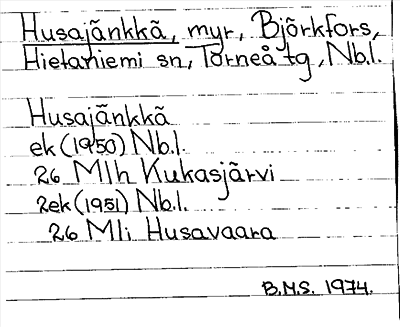 Husajänkkä, myr, Björkfors,
Hietaniemi sn, Torneå tg, Nb.l.
Husajänkkä
ek (1950) Nb.l.
26 Mlh Kukasjärvi
2ek (1951) Nb.l.
26 Mli Husavaara
B.M.S. 1974.